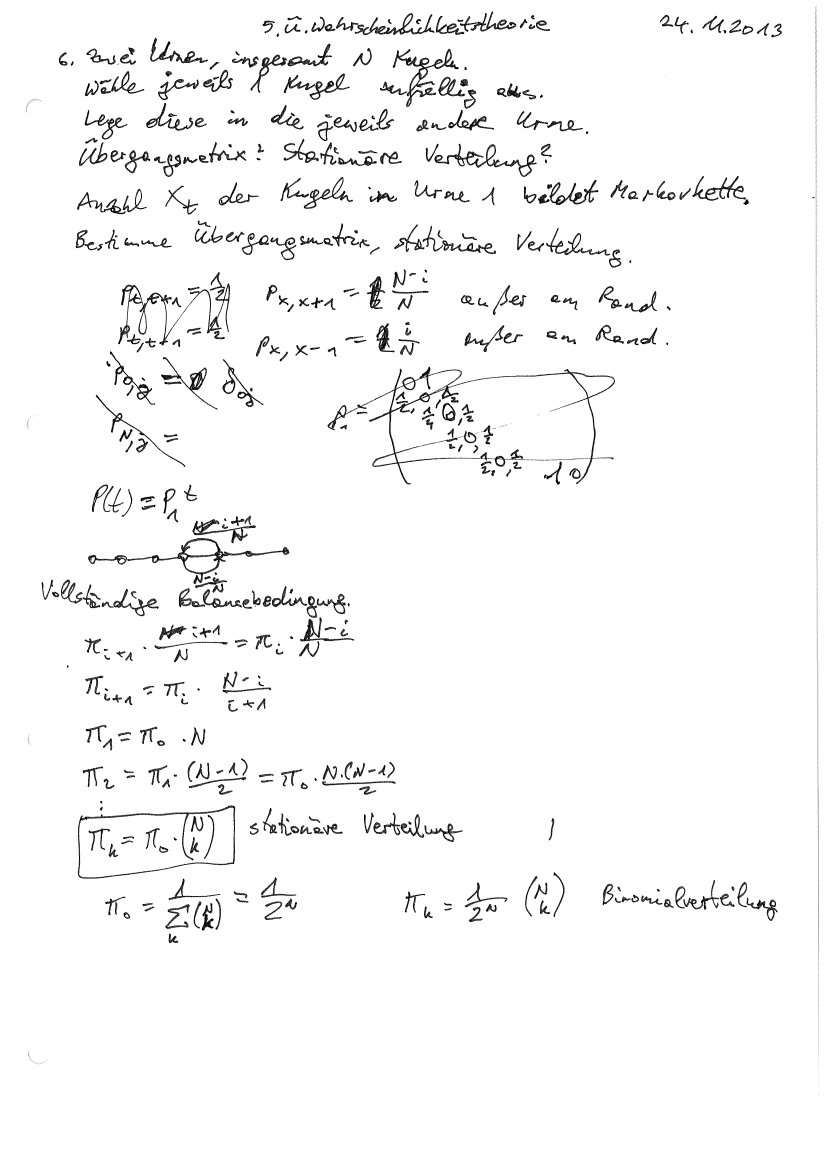 5. Ü. Wahrscheinlichkeitstheorie 24.11.2013
6. Zwei Urnen, insgesamt N Kugeln.
Wähle jeweils 1 Kugel zufällig aus.
Lege diese in die jeweils andere Urne.
Übergangsmatrix? Stationäre Verteilung?
Anzahl X_t der Kugeln in Urne 1 bildet Markovkette.
Bestimme Übergangsmatrix, stationäre Verteilung.
P_{t,t+1} = 1/2 P_{x,x+1} = (N-i)/N außer am Rand.
P_{t,t+1} = 1/2 P_{x,x-1} = i/N außer am Rand.
P_{0,j} = δ_{0j}
P_{N,j} =
P_1 = ( 0 1
1/2, 0, 1/2
1/2 0, 1/2
1/2, 0, 1/2
1/2, 0, 1/2 1 0 )
P(t) = P_1^t
(i+1)/N
(N-i)/N
Vollständige Balancebedingung.
π_{i+1} · (i+1)/N = π_i · (N-i)/N
π_{i+1} = π_i · (N-i)/(i+1)
π_1 = π_0 · N
π_2 = π_1 · (N-1)/2 = π_0 · N·(N-1)/2
⋮
π_k = π_0 · (N k) stationäre Verteilung
π_0 = 1/Σ_k (N k) = 1/2^N π_k = 1/2^N (N k) Binomialverteilung